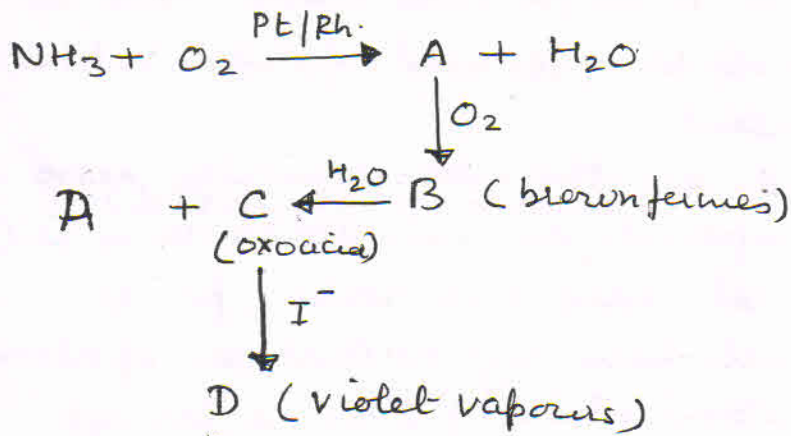 Pt/Rh.
NH₃ + O₂ → A + H₂O
↓ O₂
A + C ←H₂O B (brown fumes)
(oxoacid)
↓ I⁻
D (violet vapours)